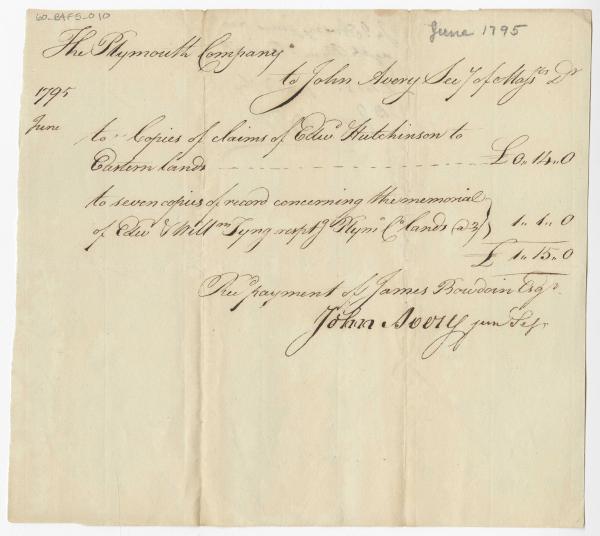 60-BAFS-010
June 1795
The Plymouth Company
to John Avery Secy of Massts Dr
1795
June
to Copies of claims of Edwd Hutchinson to
Eastern lands £0,, 14,, 0
to seven copies of record concerning the memorial
of Edwd & Willm Tyng respg Plymo Co lands (a 3/) 1,, 1,, 0
£ 1,, 15,, 0
Recd payment of James Bowdoin Esqr
John Avery jun Secy